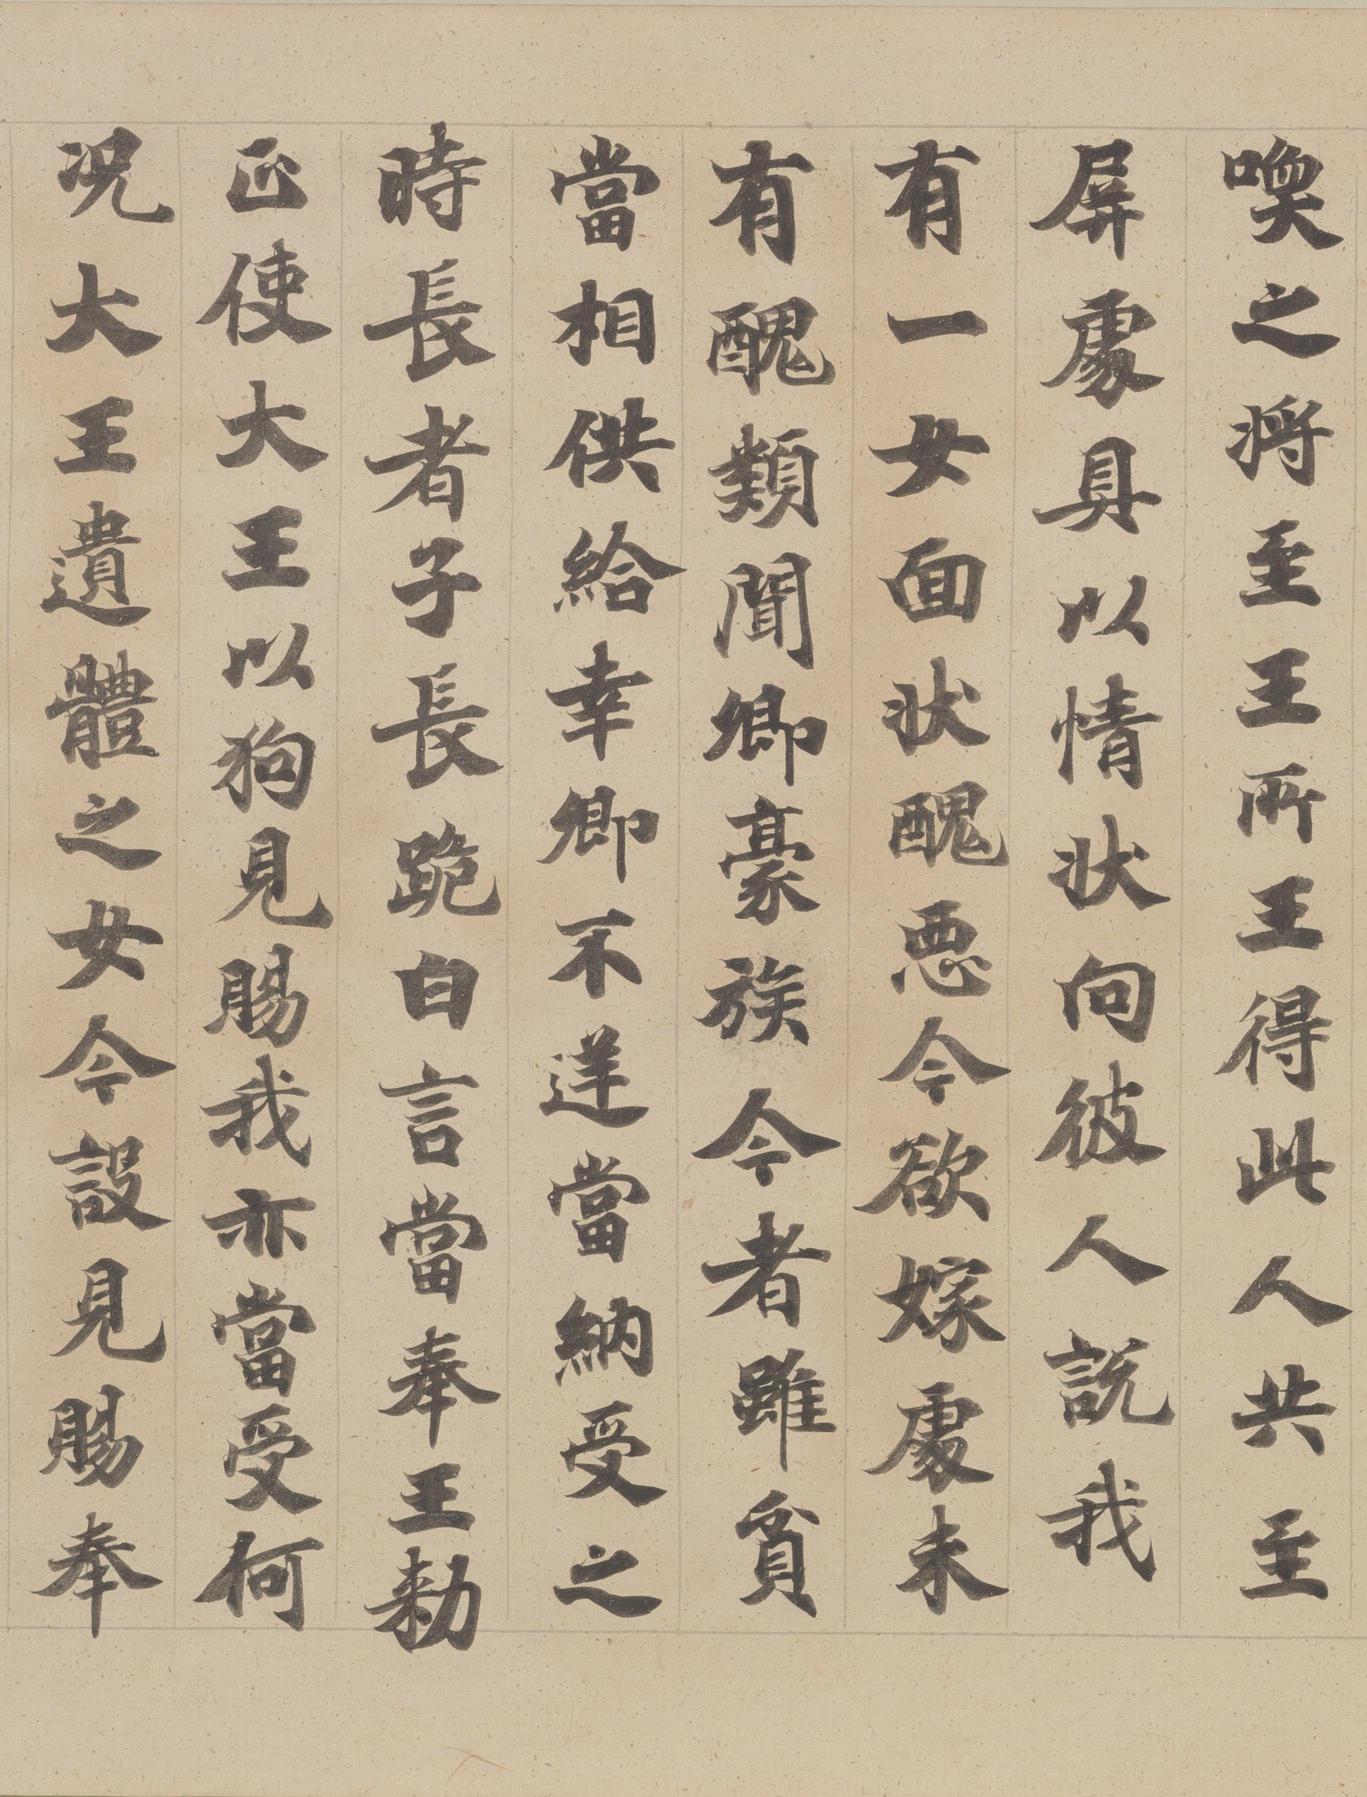 喚之将至王所王得此人共至
屏處具以情状向彼人説我
有一女面状醜惡今欲嫁處未
有醜類聞卿豪族今者雖貧
當相供給幸卿不逆當納受之
時長者子長跪白言當奉王勅
正使大王以狗見賜我亦當受何
况大王遺體之女今設見賜奉